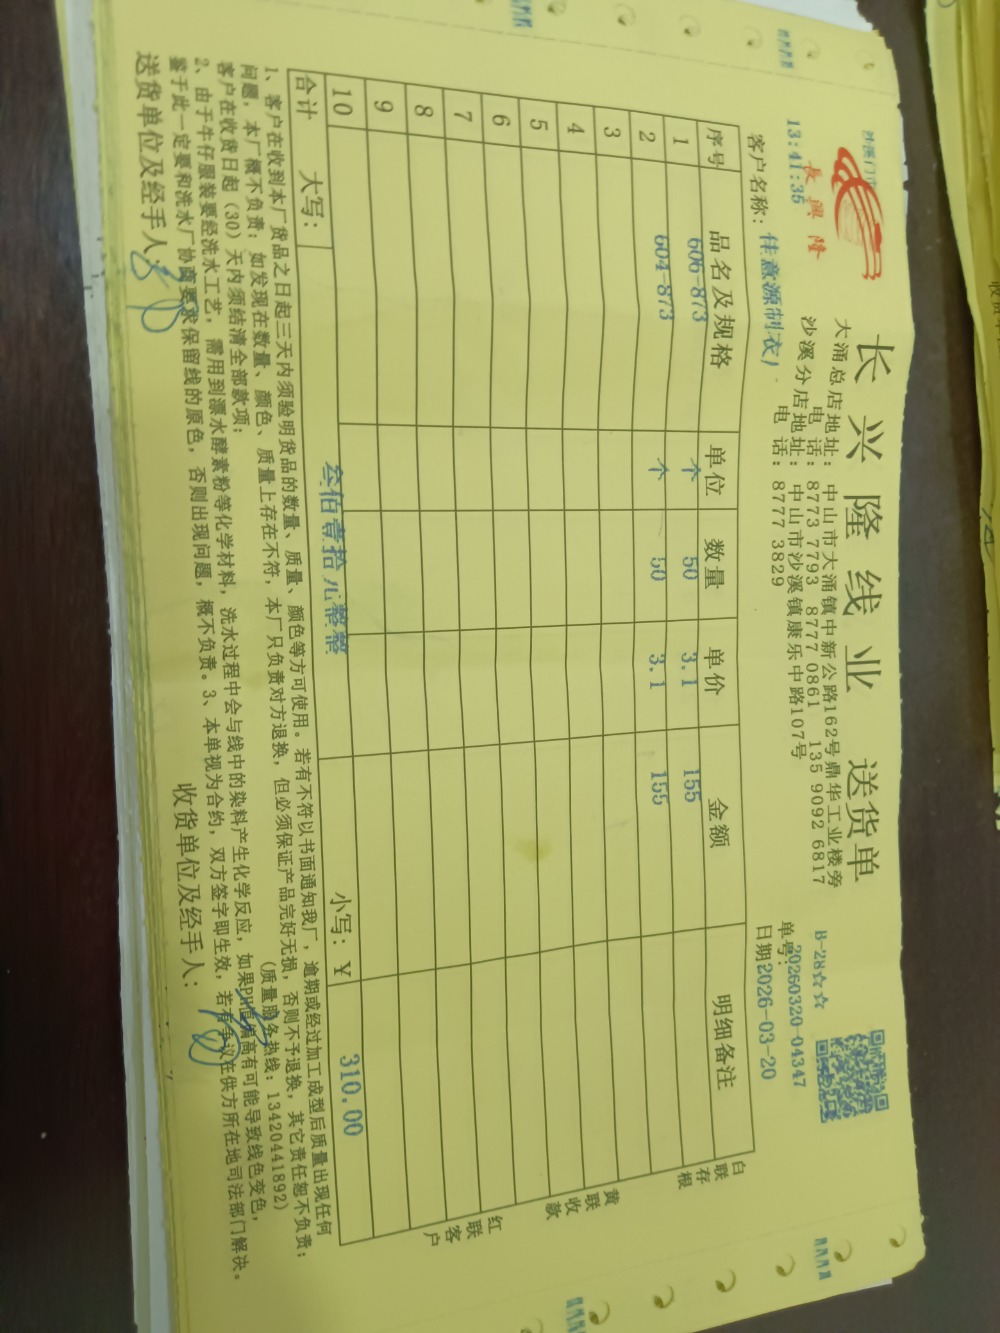 沙溪门市
長興隆
长兴隆线业 送货单
大涌总店地址：中山市大涌镇中新公路162号鼎华工业楼旁
电 话：8773 7793 8777 0861 135 9092 6817
沙溪分店地址：中山市沙溪镇康乐中路107号
电 话：8777 3829
B-28☆☆
13:41:35
单号：20260320-04347
客户名称：佳意源制衣
日期2026-03-20
序号 品名及规格 单位 数量 单价 金额 明细备注
1 606-873 个 50 3.1 155
2 604-873 个 50 3.1 155
3
4
5
6
7
8
9
10
合计 大写：叁佰壹拾元整整 小写：¥ 310.00
白联存根
黄联收款
红联客户
1、客户在收到本厂货品之日起三天内须验明货品的数量、质量、颜色等方可使用。若有不符以书面通知我厂，逾期或经过加工成型后质量出现任何
问题，本厂概不负责；如发现在数量、颜色、质量上存在不符，本厂只负责对方退换，但必须保证产品完好无损，否则不予退换，其它责任恕不负责；
客户在收货日起（30）天内须结清全部款项； （质量服务热线：13420441892）
2、由于牛仔服装要经洗水工艺，需用到漂水酵素粉等化学材料，洗水过程中会与线中的染料产生化学反应，如果PH值偏高有可能导致线色变色，
鉴于此一定要和洗水厂协商要求保留线的原色，否则出现问题，概不负责。3、本单视为合约，双方签字即生效，若有争议在供方所在地司法部门解决。
送货单位及经手人： 收货单位及经手人：